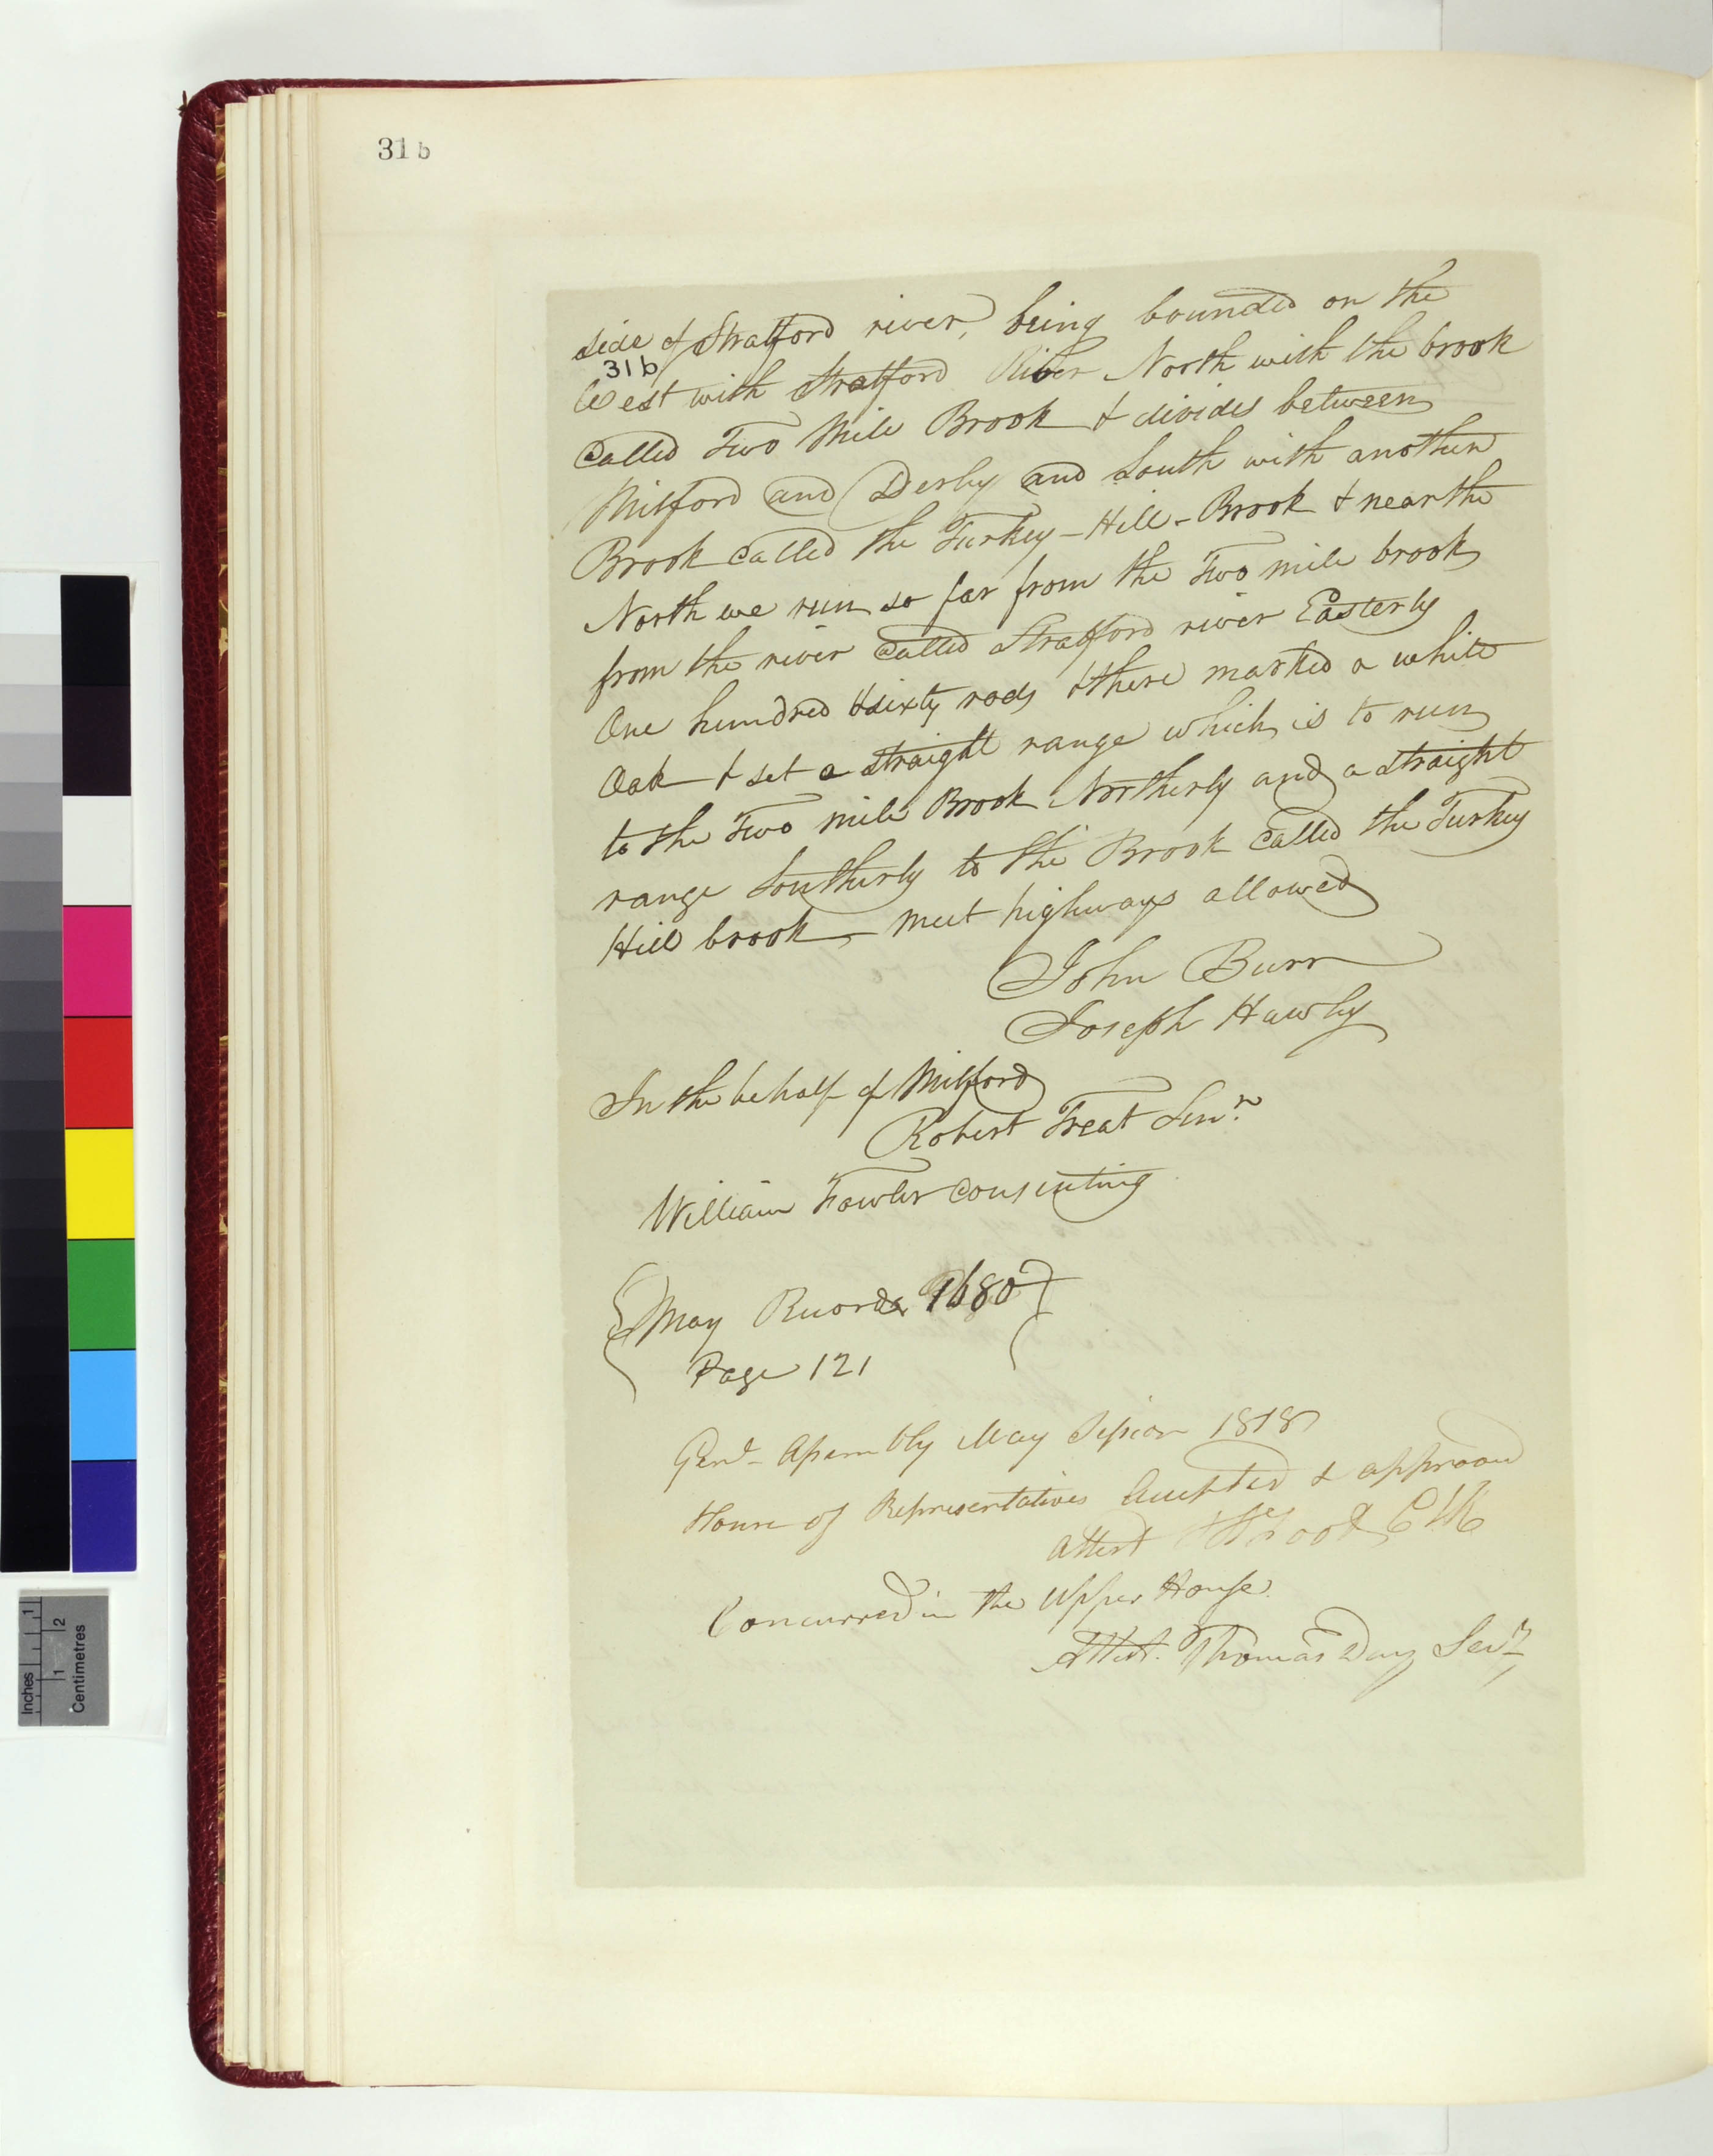 31b
side of Stratford river, being bounded on the
31b
West with Stratford River North with the brook
Called Two Mile Brook & divides between
Milford and Derby and South with another
Brook called the Turkey-Hill-Brook & near the
North we run so far from the Two mile brook
from the river called Stratford river Easterly
One hundred & sixty rods & there marked a white
Oak & set a straight range which is to run
to the Two mile Brook Northerly and a straight
range Southerly to the Brook called the Turkey
Hill brook - meet highways allowed
John Burr
Joseph Hawly
In the behalf of Milford
Robert Treat Senr
William Fowler consenting
May Records 1680
Page 121
Genl Assembly May Session 1818
House of Representatives Accepted & approved
Attest Clk
Concurred in the Upper House.
Attest. Thomas Day Secy
Inches 1 2
1 Centimetres